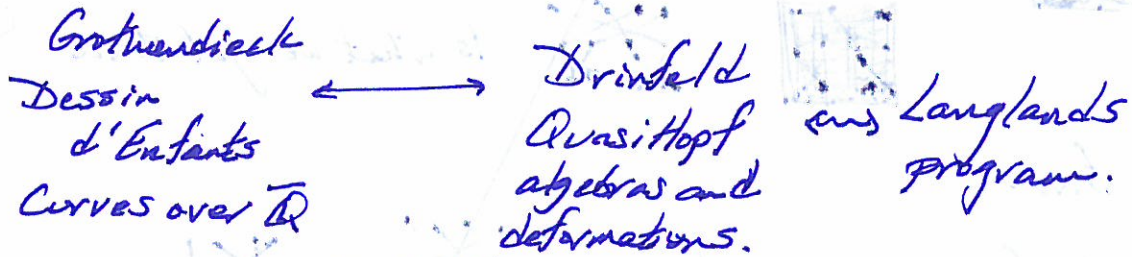 Grothendieck
Dessin
d'Enfants
Curves over Q̅
⟷
Drinfeld
QuasiHopf
algebras and
deformations.
⟷ Langlands
program.